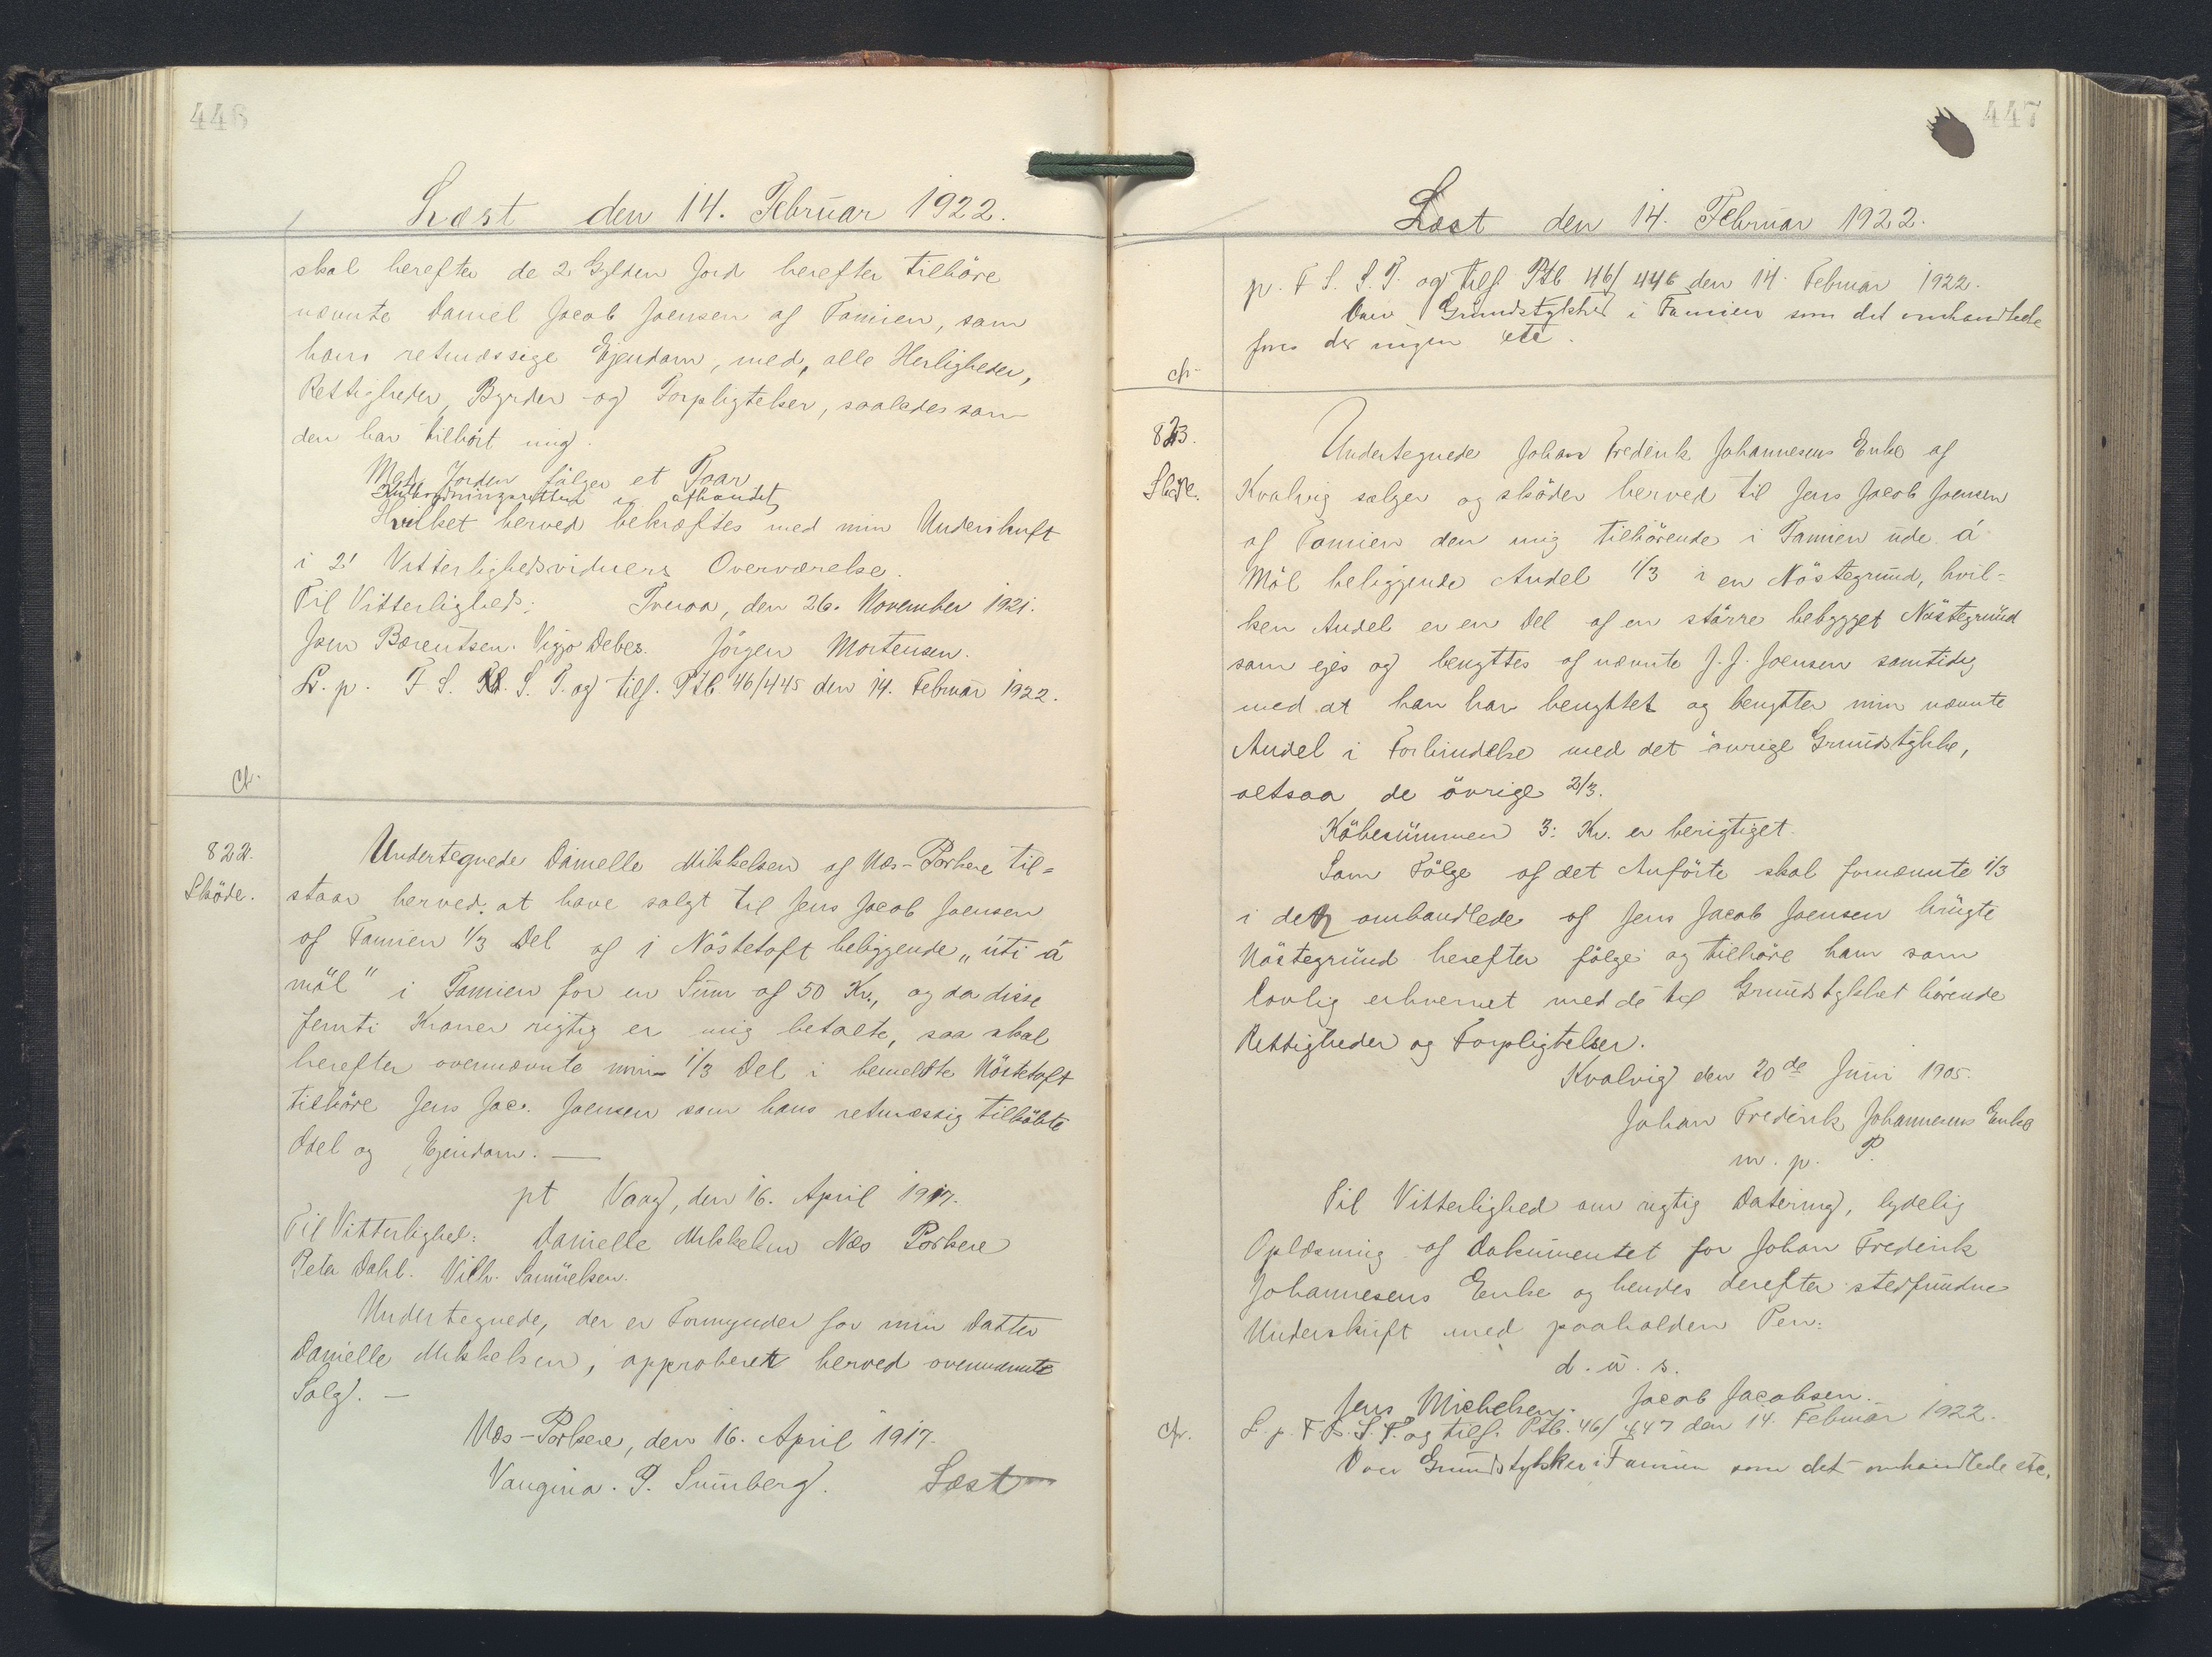 446
Læst den 14. Februar 1922.
skal herefter de 2 Gylden Jord herefter tilhöre
nævnte Daniel Jacob Joensen af Famien, som
hans retmæssige Ejendom, med, alle Herligheder,
Rettigheder, Byrder og Forpligtelser, saaledes som
den har tilhört mig.
Med Jorden fölger et Faar
er afhandet
Hvilket herved bekræftes med min Underskrift
i 2' Vitterlighedsvidners Overværelse.
Til Vitterlighed: Tveraa, den 26. November 1921.
Joen Bærentsen. Viggo Debes. Jörgen Mortensen.
L. p. F. S. S. T. og tilf. Ptb. 46/445 den 14. Februar 1922.
cfr.
822.
Sköde.
Undertegnede Danielle Mikkelsen af Næs-Porkere til=
staar herved at have solgt til Jens Jacob Joensen
af Famien 1/3 Del af 1 Nöstetoft beliggende „úti á
möl" i Famien for en Sum af 50 Kr., og da disse
femti Kroner rigtig er mig betalte, saa skal
herefter ovennævnte min 1/3 Del i bemeldte Nöstetoft
tilhöre Jens Jac. Joensen som hans retmæssig tilköbte
Odel og Ejendom. —
pt Vaag, den 16. April 1917.
Til Vitterlighed: Danielle Mikkelsen Næs Porkere
Peter Dahl. Vilh. Samuelsen.
Undertegnede, der er Formynder for min Datter
Danielle Mikkelsen, approberet herved ovennævnte
Salg. —
Næs-Porkere, den 16. April 1917.
Vaugina. P. Sumberg. Læst
447
Læst den 14. Februar 1922.
p. F. S. S. T. og tilf. Ptb 46/446 den 14. Februar 1922.
Over Grundstykket i Famien som det omhandlede
fores der ingen etc.
cfr.
823.
Sköde.
Undertegnede Johan Frederik Johannesens Enke af
Kvalvig sælger og sköder herved til Jens Jacob Joensen
af Famien den mig tilhörende i Famien ude á
Möl beliggende Andel 1/3 i en Nöstegrund, hvil=
ken Andel er en Del af en större bebygget Nöstegrund
som ejes og benyttes af nævnte J. J. Joensen samtidig
med at han har benyttet og benytter min nævnte
Andel i Forbindelse med det övrige Grundstykke,
altsaa de övrige 2/3.
Köbesummen 3: Kr. er berigtiget.
Som Fölge af det Anförte skal fornævnte 1/3
i den omhandlede af Jens Jacob Joensen brugte
Nöstegrund herefter fölge og tilhöre ham som
lovlig erhvervet med de til Grundstykket hörende
Rettigheder og Forpligtelser.
Kvalvig den 20de Juni 1905.
Johan Frederik Johannesens Enke
m. p. P.
Til Vitterlighed om rigtig Datering, lydelig
Oplæsning af Dokumentet for Johan Frederik
Johannesens Enke og hendes derefter stedfundne
Underskrift med paaholden Pen:
d. u. s.
Jens Michelsen. Jacob Jacobsen.
cfr. L. p. F. S. S. T. og tilf. Ptb. 46/447 den 14. Februar 1922.
Over Grundstykker i Famien som det omhandlede etc.